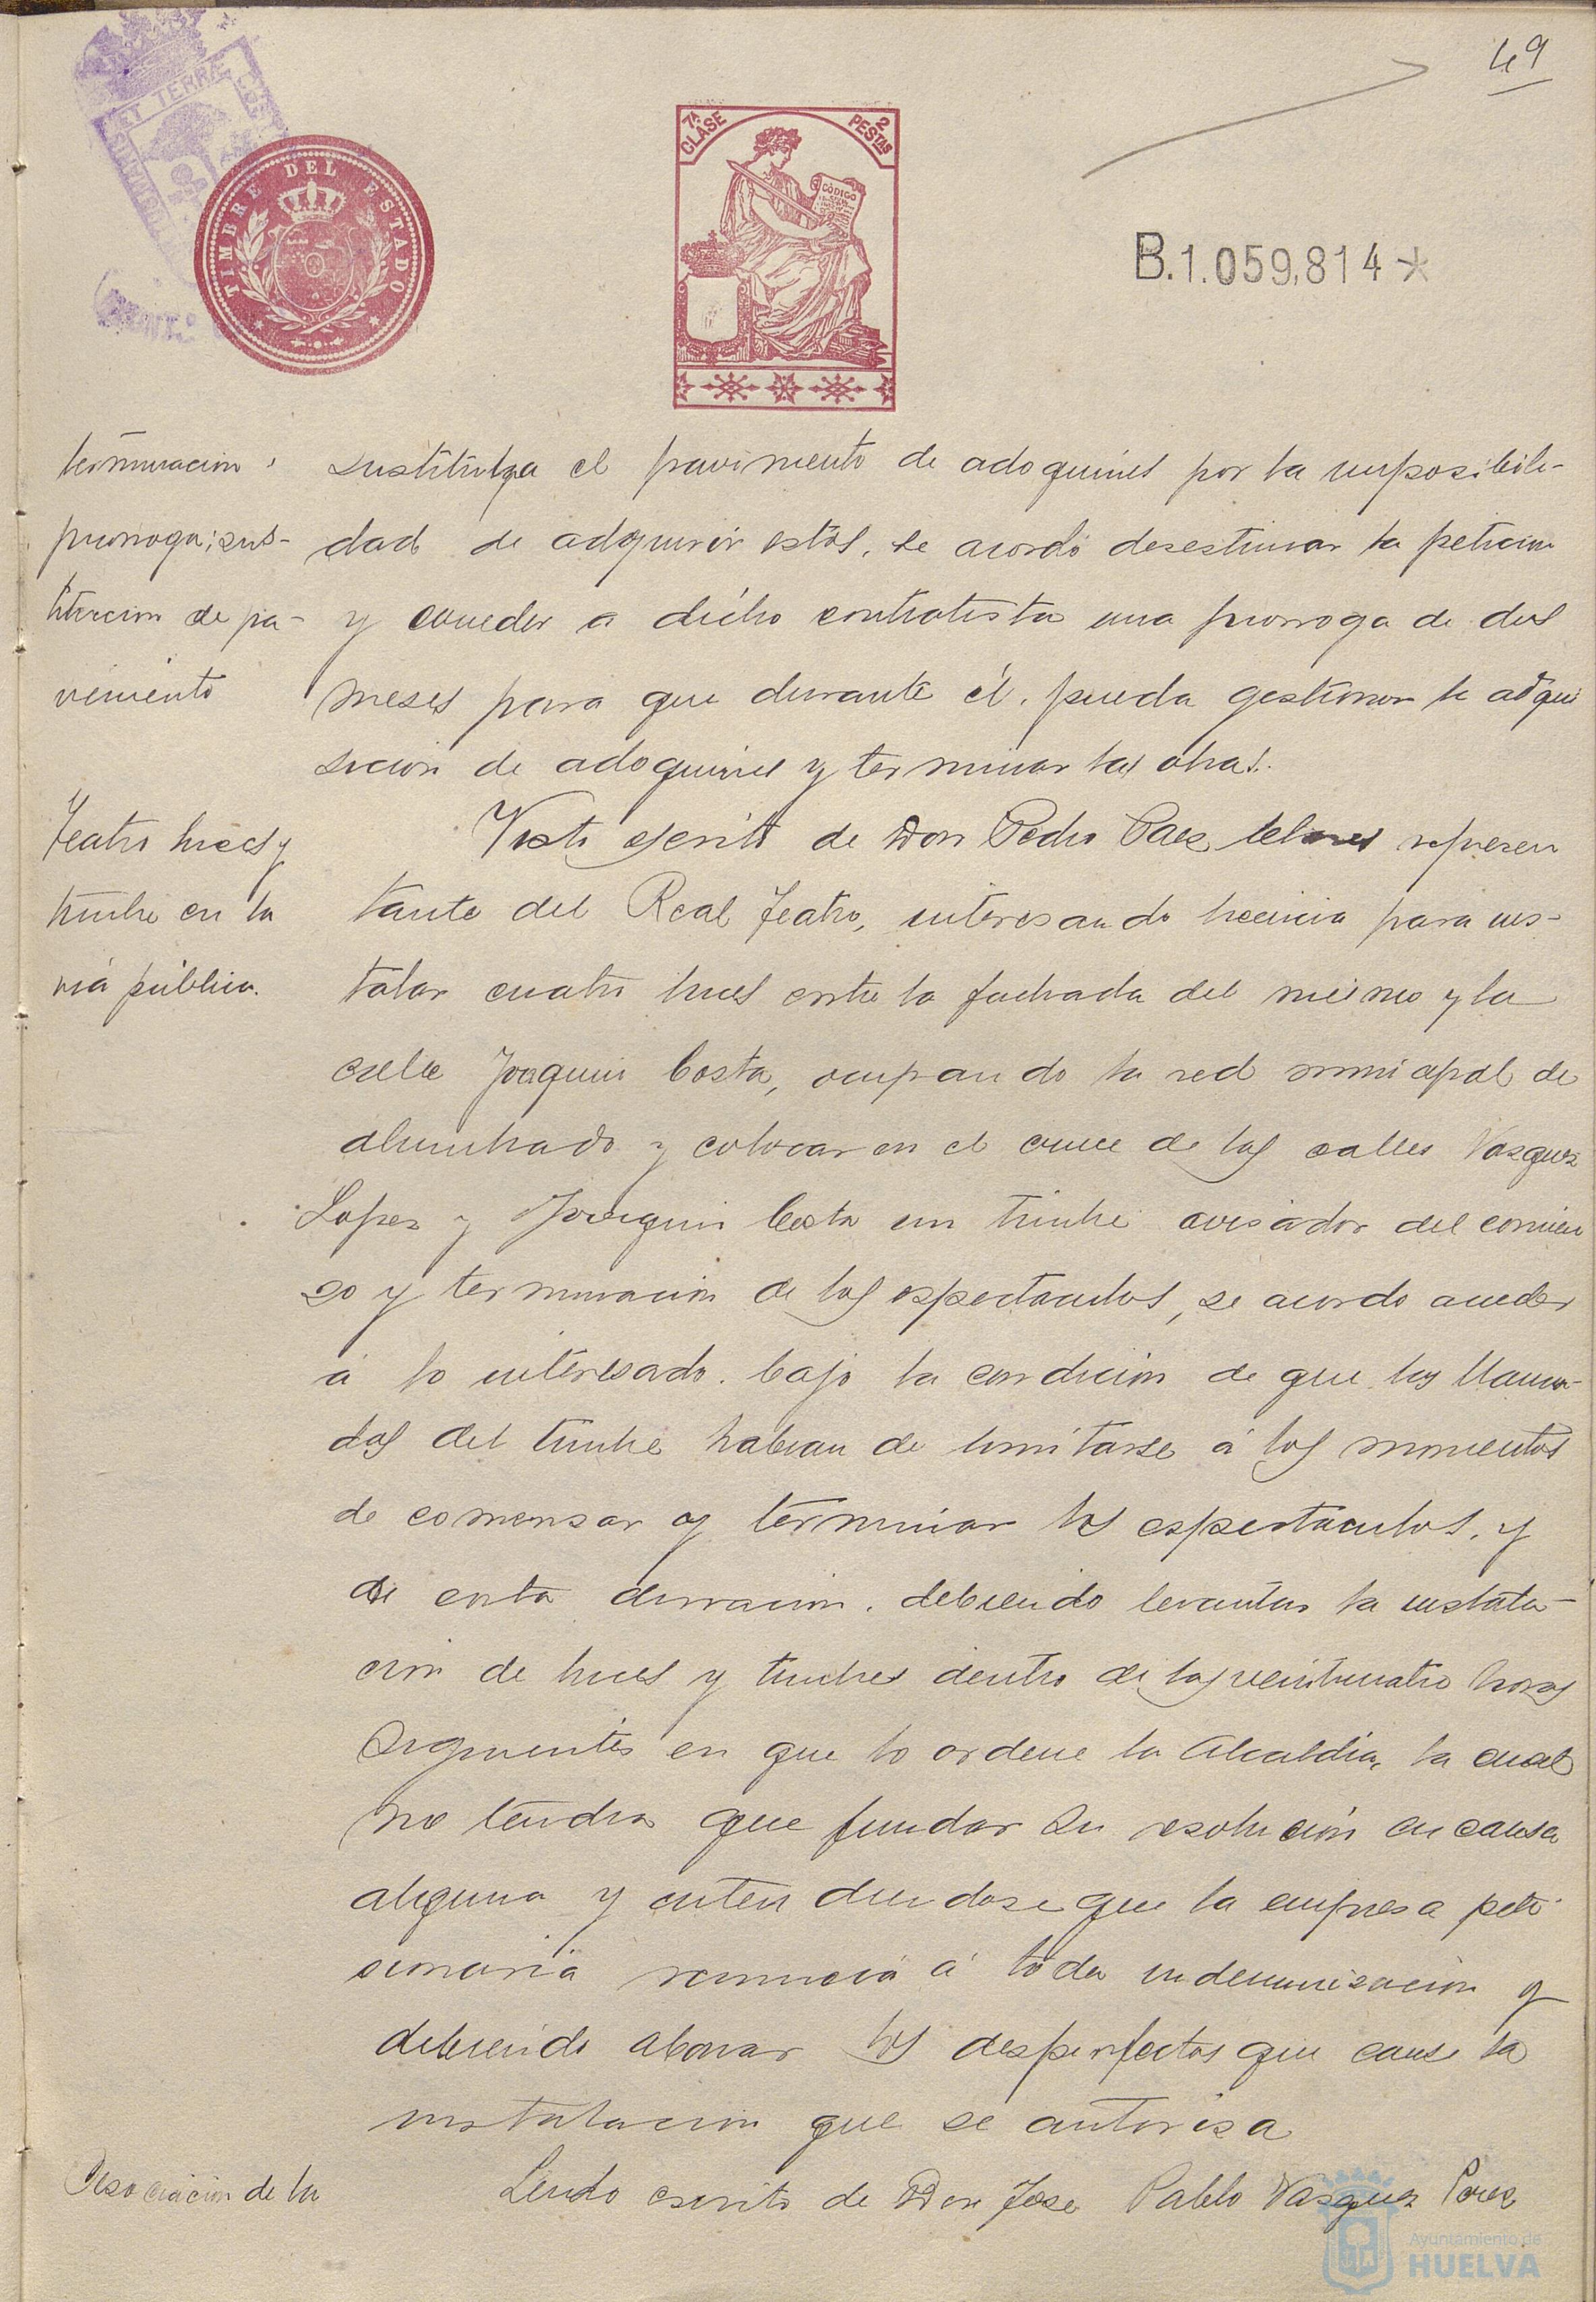 49
ET TERRÆ
TIMBRE DEL ESTADO
7ª CLASE
2 PESTAS
CÓDIGO
B.1.059,814*
terminacion,
prorroga; sus-
titucion de pa-
vimento
sustitutya el pavimento de adoquines por la imposibili-
dad de adquirir estos, se acordó desestimar la peticion
y conceder a dicho contratista una prorroga de dos
meses para que durante él, pueda gestionar la adqui
sicion de adoquines y terminar las obras.
Teatro luces y
timbre en la
via pública.
Visto escrito de Don Pedro Paez represen
tante del Real Teatro, interesando licencia para ins-
talar cuatro luces entre la fachada del mismo y la
calle Joaquin Costa, ocupando la red municipal de
alumbrado y colocar en el cruce de las calles Vazquez
Lopez y Joaquin Costa un timbre avisador del comien
zo y terminacion de los espectaculos, se acordo acceder
á lo interesado bajo la condición de que las llama-
das del timbre habian de limitarse á los momentos
de comenzar y terminar los espectaculos, y
de corta duracion, debiendo levantar la instala-
cion de luces y timbres dentro de las veinticuatro horas
siguientes en que lo ordene la Alcaldia, la cual
no tendra que fundar su resolución en causa
alguna y entendiendose que la empresa peti
cionaria renuncia á toda indemnizacion y
debiendo abonar los desperfectos que cause la
instalacion que se autoriza
Asociacion de la
Leido escrito de Don Jose Pablo Vazquez Perez
Ayuntamiento de
HUELVA